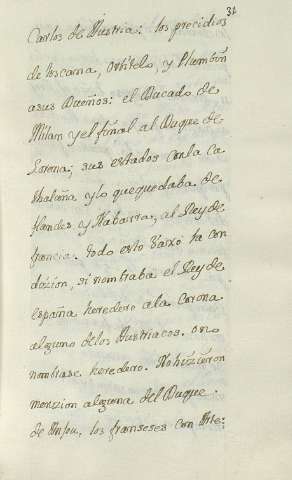 31
Carlos de Austria: los precidios
de toscana, Orbitelo, y Plumbin
asus Dueños: el Ducado de
Milam y el final al Duque de
Lorena; sus estados con la ca
thaluña y lo que quedaba de
flandes y Nabarra, al Rey de
francia. todo esto baxo la con
dizion, si nombraba el Rey de
españa heredero a la corona
alguno de los Austriacos. o no
nombrase heredero. No hizieron
menzion alguna del Duque
de Anjou. los franseses con Arte: